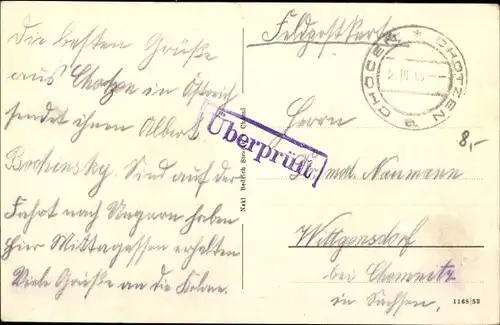 Die besten Grüße
aus Chotzen in Östreich
sendet ihnen Albert
Sind auf der
Fahrt nach Ungarn haben
hier Mittagessen erhalten
Viele Grüße an die
Nakl. Bedřich
Feldpostkarte
CHOCEŇ * CHOTZEN
a
Überprüft
8,-
Herrn
Dr. med. Naumann
Wittgensdorf
bei Chemnitz
in Sachsen.
1168 53